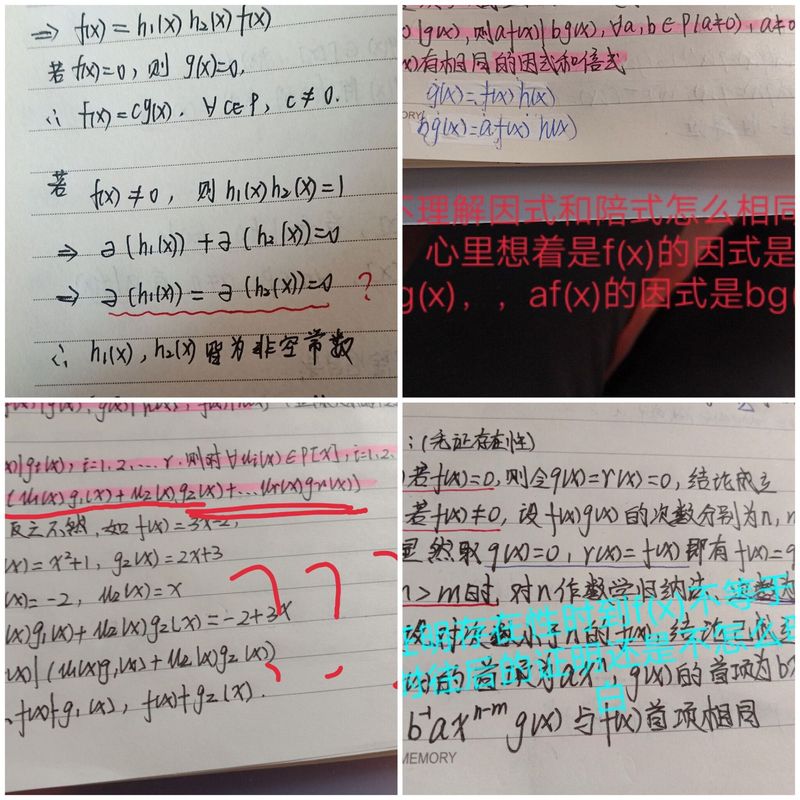 ⇒ f(x)=h₁(x)h₂(x)f(x)
若f(x)=0, 则 g(x)=0,
∴ f(x)=cg(x). ∀c∈P, c≠0.
若 f(x)≠0, 则h₁(x)h₂(x)=1
⇒ ∂(h₁(x))+∂(h₂(x))=0
⇒ ∂(h₁(x))=∂(h₂(x))=0 ?
∴ h₁(x),h₂(x)皆为非空常数
|g(x), 则af(x)|bg(x), ∀a,b∈P(a≠0), a≠0
x)有相同的因式和倍式
g(x)=f(x)h(x)
bg(x)=af(x)h(x)
不理解因式和陪式怎么相同
心里想着是f(x)的因式是
g(x),,af(x)的因式是bg(
x)|gi(x), i=1,2,…,r.则对∀ui(x)∈P[x], i=1,2,
(u₁(x)g₁(x)+u₂(x)g₂(x)+…ur(x)gr(x))
反之不然,如f(x)=3x-2,
(x)=x²+1, g₂(x)=2x+3
(x)=-2, u₂(x)=x
(x)g₁(x)+u₂(x)g₂(x)=-2+3x
(x)|(u₁(x)g₁(x)+u₂(x)g₂(x))
f(x)∤g₁(x), f(x)∤g₂(x).
???
:(先证存在性)
若f(x)=0,则令q(x)=r(x)=0,结论成立
若f(x)≠0,设f(x)g(x)的次数分别为n,
显然取q(x)=0,r(x)=f(x)即有f(x)=q
n>m时,对n作数学归纳法
的首项为ax, g(x)的首项为b
b⁻¹axⁿ⁻ᵐg(x)与f(x)首项相同
证明存在性时到f(x)不等于
白
MEMORY